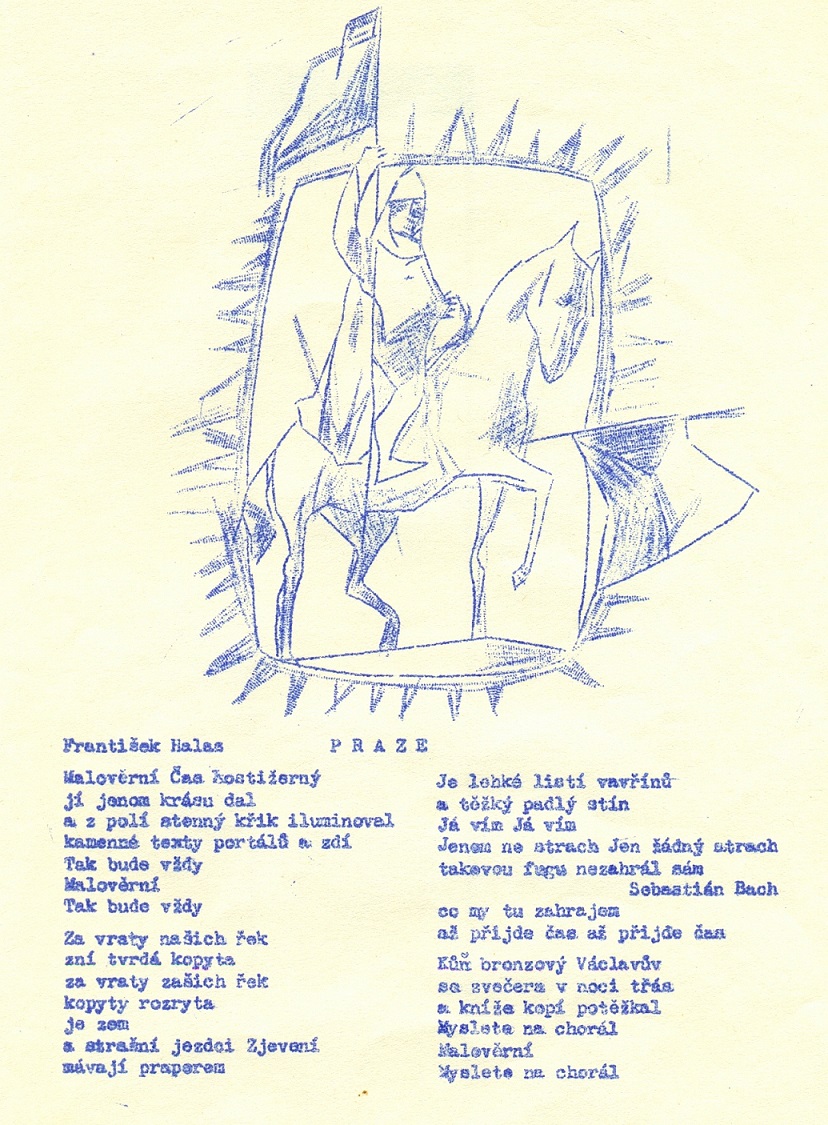 František Halas
P R A Z E
Malověrní Čas hostižerný
jí jenom krásu dal
a z polí stenný křik iluminoval
kamenné texty portálů a zdí
Tak bude vždy
Malověrní
Tak bude vždy
Za vraty našich řek
zní tvrdá kopyta
za vraty zašich řek
kopyty rozryta
je zem
a strašní jezdci Zjevení
mávají praporem
Je lehké listí vavřínů
a těžký padlý stín
Já vím Já vím
Jenom ne strach Jen žádný strach
takovou fugu nezahrál sám
Sebastián Bach
co my tu zahrajem
až přijde čas až přijde čas
Kůň bronzový Václavův
se zvečera v noci třás
a kníže kopí potěžkal
Myslete na chorál
Malověrní
Myslete na chorál